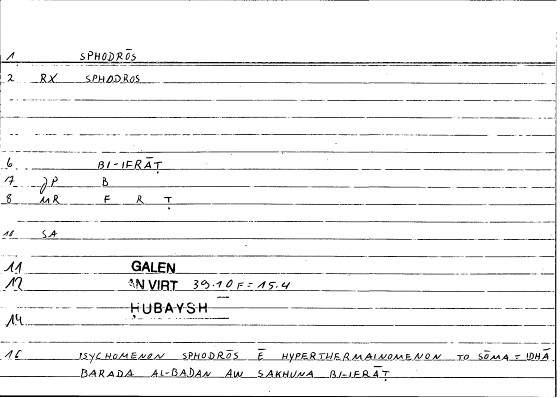 1 SPHODRŌS
2 RX SPHODROS
6 BI-IFRĀṬ
7 JP B
8 MR F R Ṭ
10 SA
11 GALEN
12 AN VIRT 39.10 F = 15.4
ḤUBAYSH
14
16 PSYCHOMENON SPHODRŌS Ē HYPERTHERMAINOMENON TO SŌMA = IDHĀ
BARADA AL-BADAN AW SAKHUNA BI-IFRĀṬ